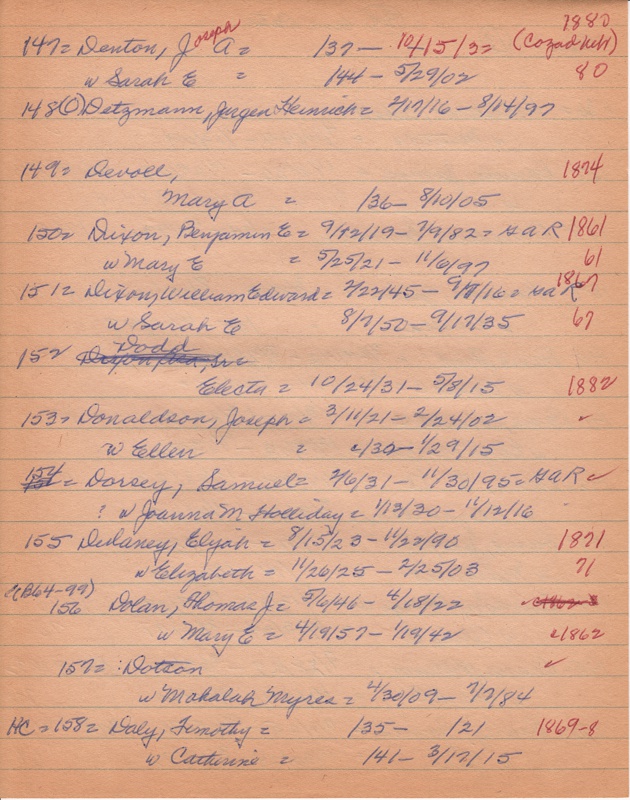 1880
147= Denton, Joseph A = /37 — 10/15/3= (Cozad Neb)
w Sarah E = 144 — 5/29/02 80
148(0) Detzmann, Jurgen Heinrich = 2/17/16 — 8/14/97
149= Devoll, 1874
Mary A = /36 — 8/10/05
150= Dixon, Benjamin E = 9/12/19 — 7/9/82 = GAR 1861
w Mary E = 5/25/21 — 11/6/97 61
151= Dixon, William Edward = 2/22/45 — 9/7/16 = GAR 1867
w Sarah E 8/7/50 — 9/17/35 67
152 Dodd
Electa = 10/24/31 — 5/8/15 1882
153= Donaldson, Joseph = 3/11/21 — 2/24/02 ✓
w Ellen = c/32 — 1/29/15
154 = Dorsey, Samuel = 2/6/31 — 11/30/95 = GAR ✓
? w Joanna M. Holliday = 1/13/30 — 12/12/16
155 Dulaney, Elijah = 8/15/23 — 11/22/90 1871
w Elizabeth = 11/26/25 — 2/25/03 71
c(B64-99)
156 Dolan, Thomas J = 5/6/46 — 4/18/22
w Mary E = 4/19/57 — 1/19/42 c1862
157= : Dotson ✓
w Mahalah Myres = 4/30/09 — 7/2/84
HC = 158 = Daly, Timothy = /35 — /21 1869-8
w Catherine = 141 — 3/17/15